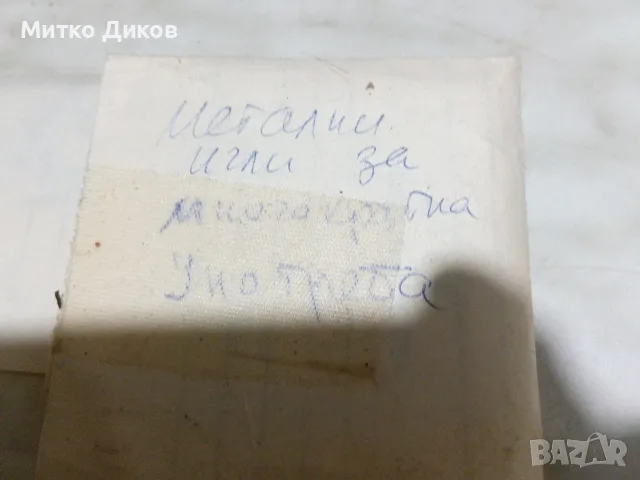 Митко Диков
Метални
игли за
многократна
Употреба
BAZAR